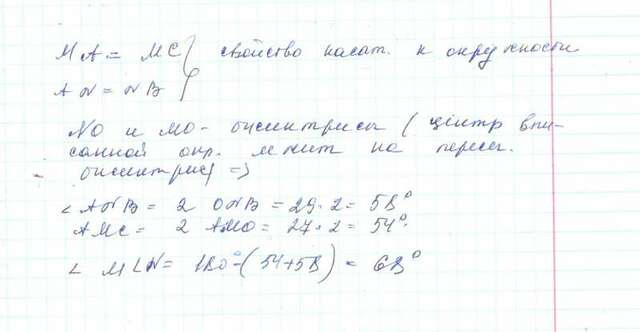 MA = MC } свойство касат. к окружности
AN = NB
NO и MO - биссектрисы ( центр впи-
санной окр. лежит на пересе.
биссектрис) =>
∠ ANB = 2 ONB = 29·2 = 58°
AMC = 2 AMO = 27·2 = 54°
∠ MLN = 180° - (54+58) = 68°